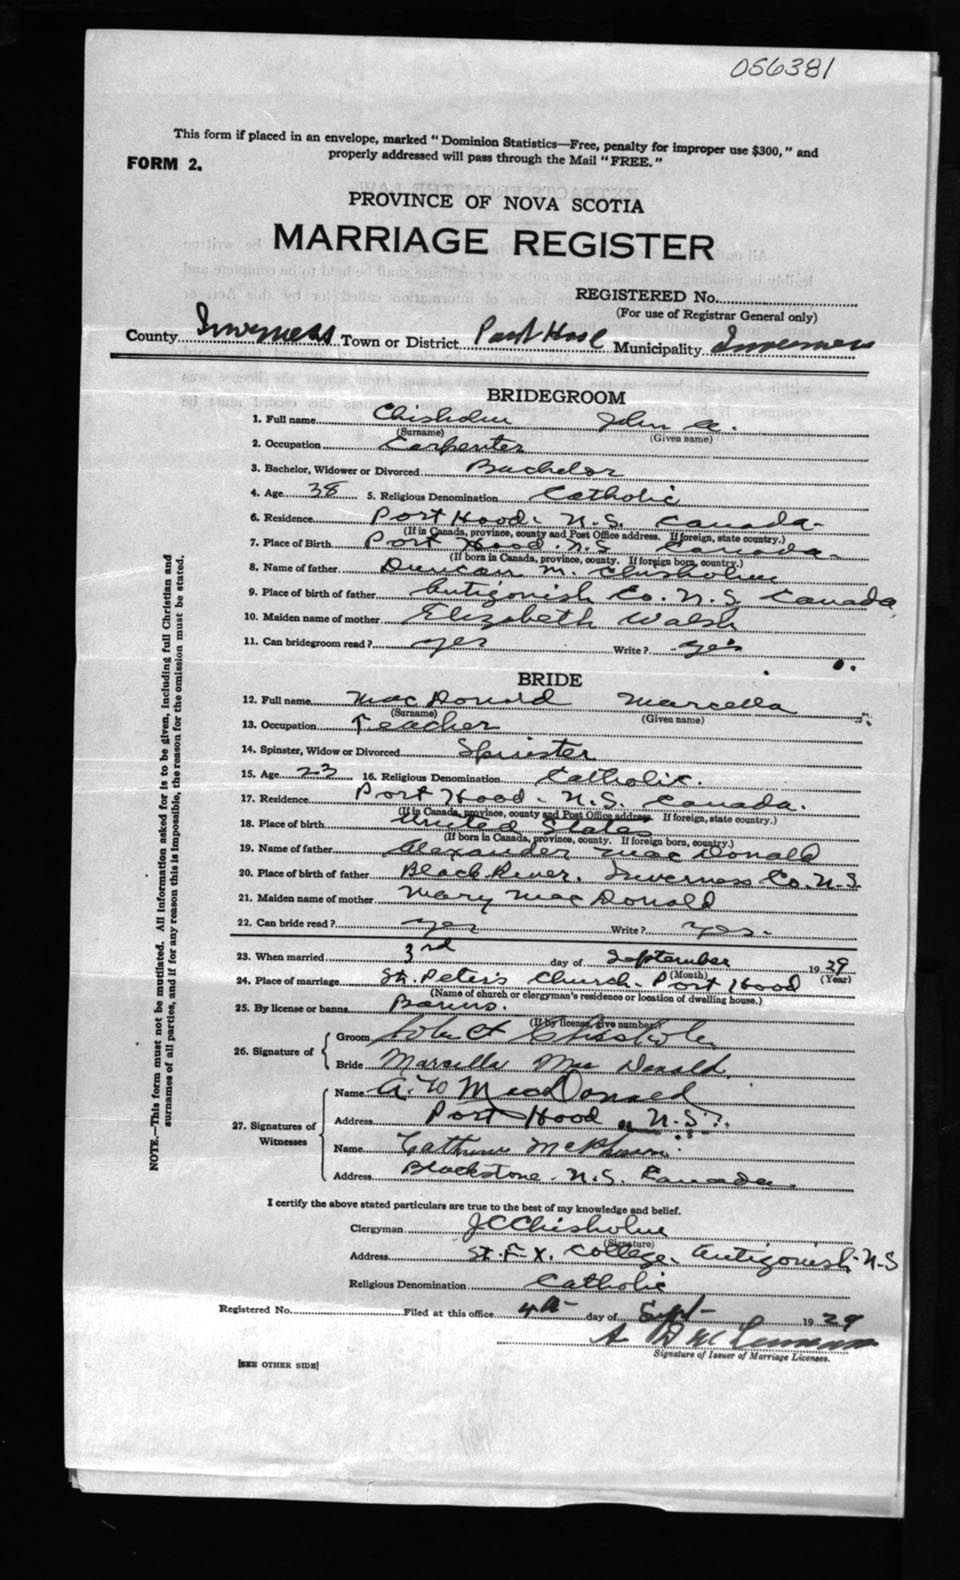 056381
This form if placed in an envelope, marked "Dominion Statistics—Free, penalty for improper use $300," and
FORM 2. properly addressed will pass through the Mail "FREE."
PROVINCE OF NOVA SCOTIA
MARRIAGE REGISTER
REGISTERED No.
(For use of Registrar General only)
County Inverness Town or District Port Hood Municipality Inverness
BRIDEGROOM
1. Full name Chisholm John A.
(Surname) (Given name)
2. Occupation Carpenter
3. Bachelor, Widower or Divorced Bachelor
4. Age 38 5. Religious Denomination Catholic
6. Residence Port Hood. N.S. Canada.
(If in Canada, province, county and Post Office address. If foreign, state country.)
7. Place of Birth Port Hood. N.S. Canada.
(If born in Canada, province, county. If foreign born, country.)
8. Name of father Duncan M. Chisholm
9. Place of birth of father Antigonish Co. N.S. Canada
10. Maiden name of mother Elizabeth Walsh
11. Can bridegroom read? yes Write? yes
BRIDE
12. Full name MacDonald Marcella
(Surname) (Given name)
13. Occupation Teacher
14. Spinster, Widow or Divorced Spinster
15. Age 23 16. Religious Denomination Catholic.
17. Residence Port Hood. N.S. Canada.
(If in Canada, province, county and Post Office address. If foreign, state country.)
18. Place of birth United States
(If born in Canada, province, county. If foreign born, country.)
19. Name of father Alexander MacDonald
20. Place of birth of father Black River. Inverness Co. N.S.
21. Maiden name of mother Mary MacDonald
22. Can bride read? yes Write? yes.
23. When married 3rd day of September 1929
(Month) (Year)
24. Place of marriage St. Peter's Church. Port Hood
(Name of church or clergyman's residence or location of dwelling house.)
25. By license or banns Banns.
(If by license, give number.)
26. Signature of Groom John A Chisholm
Bride Marcella MacDonald.
27. Signatures of Witnesses Name A. W MacDonald
Address Port Hood N.S.
Name Catherine
Address Blackstone. N.S. Canada.
I certify the above stated particulars are true to the best of my knowledge and belief.
Clergyman J C Chisholm
(Signature)
Address St. F. X. College. Antigonish. N.S
Religious Denomination Catholic
Registered No. Filed at this office 4th day of Sept 1929
A. D
Signature of Issuer of Marriage Licenses.
[SEE OTHER SIDE]
NOTE.—This form must not be mutilated. All information asked for is to be given, including full Christian and
surnames of all parties, and if for any reason this is impossible, the reason for the omission must be stated.